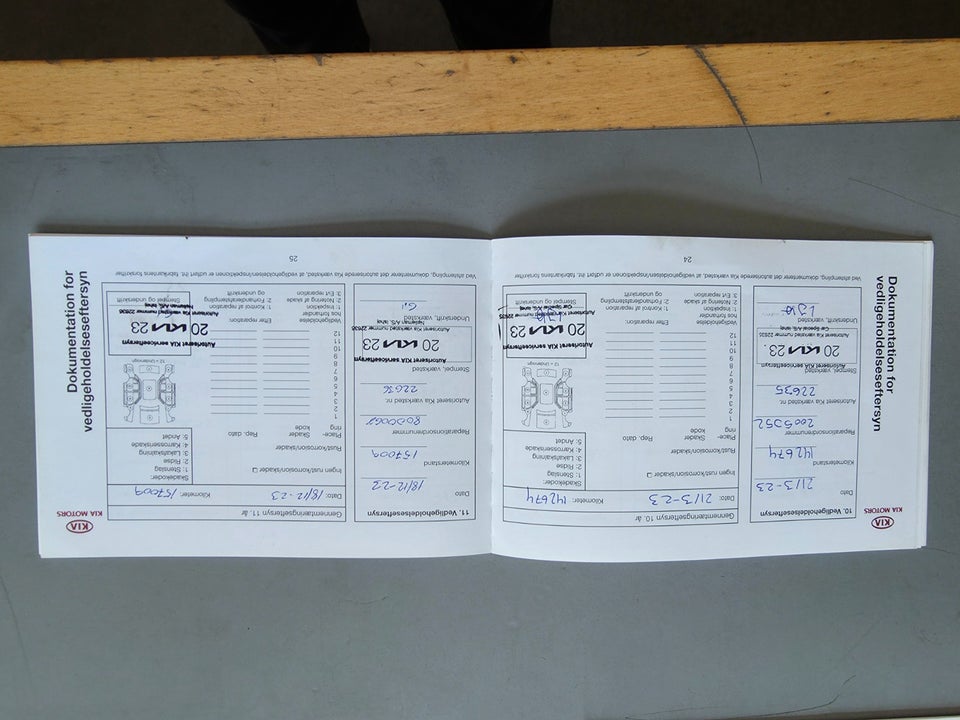 KIA MOTORS
Dokumentation for
vedligeholdelseseftersyn
10. Vedligeholdelseseftersyn
Dato
21/3-23
Kilometerstand
142674
Reparationsordrenummer
2005052
Autoriseret Kia værksted nr.
22635
Stempel, værksted
Autoriseret KIA serviceeftersyn
20 KIA 23
Autoriseret Kia værksted nummer 22635
Underskrift, værksted
Gennemtæringseftersyn 10. år
Dato: 21/3-23 Kilometer: 142674
Ingen rust/korrosion/skader
Rust/korrosion/skader
Place-
ring
Skader
kode
Rep. dato
1
2
3
4
5
6
7
8
9
10
11
12
Skadekoder:
1: Stenslag
2: Ridse
3: Lakafskalning
4: Karosseriskade
5: Andet
12 = Undervogn
Vedligeholdelse
hos forhandler
1: Inspektion
2: Notering af skade
3: Evt reparation
Efter reparation:
1: Kontrol af reparation
2: Forhandlerafstempling
og underskrift
Autoriseret KIA serviceeftersyn
20 KIA 23
Stempel og underskrift
Ved afstempling, dokumenterer det autoriserede Kia værksted, at vedligeholdelsen/inspektionen er udført iht. fabrikantens forskrifter
24
KIA MOTORS
Dokumentation for
vedligeholdelseseftersyn
11. Vedligeholdelseseftersyn
Dato
18/12-23
Kilometerstand
157009
Reparationsordrenummer
Autoriseret Kia værksted nr.
Stempel, værksted
Autoriseret KIA serviceeftersyn
20 KIA 23
Underskrift, værksted
Gennemtæringseftersyn 11. år
Dato: 18/12-23 Kilometer: 157009
Ingen rust/korrosion/skader
Rust/korrosion/skader
Place-
ring
Skader
kode
Rep. dato
1
2
3
4
5
6
7
8
9
10
11
12
Skadekoder:
1: Stenslag
2: Ridse
3: Lakafskalning
4: Karosseriskade
5: Andet
12 = Undervogn
Vedligeholdelse
hos forhandler
1: Inspektion
2: Notering af skade
3: Evt reparation
Efter reparation:
1: Kontrol af reparation
2: Forhandlerafstempling
og underskrift
Autoriseret KIA serviceeftersyn
20 KIA 23
Stempel og underskrift
Ved afstempling, dokumenterer det autoriserede Kia værksted, at vedligeholdelsen/inspektionen er udført iht. fabrikantens forskrifter
25